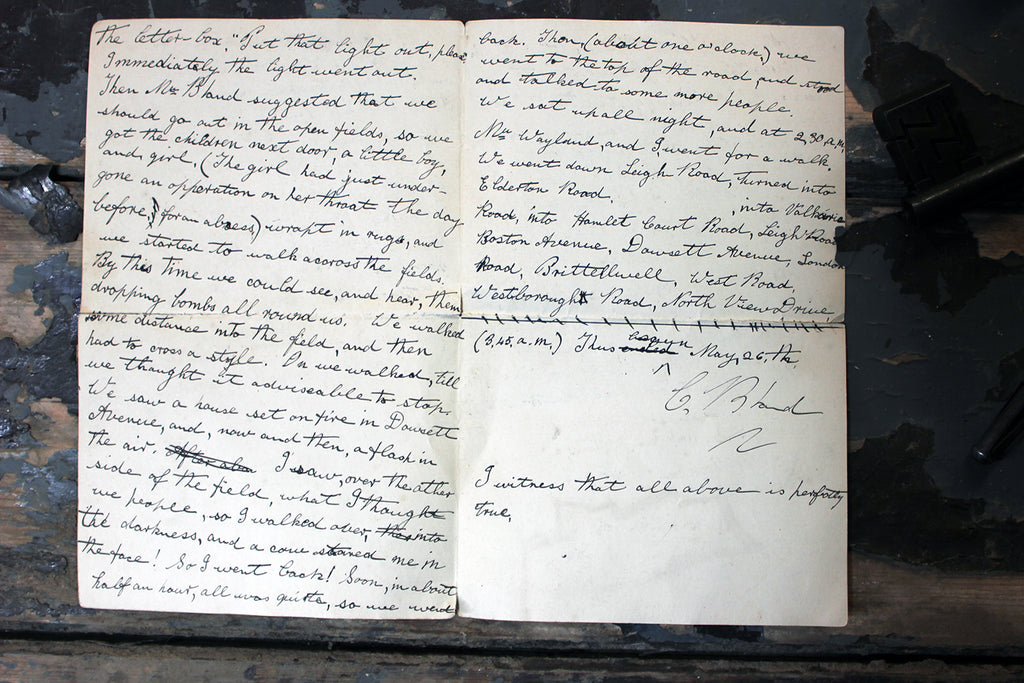 the letter-box, "Put that light out, please
Immediately the light went out.
Then Mr Bland suggested that we
should go out in the open fields, so we
got the children next door, a little boy,
and girl, (The girl had just under-
gone an operation on her throat the day
before,) for an abscess) wrapt in rugs, and
we started to walk across the field.
By this time we could see, and hear, them
dropping bombs all round us. We walked
some distance into the field, and then
had to cross a style. On we walked, till
we thought it adviseable to stop.
We saw a house set on fire in Dowsett
Avenue, and, now and then, a flash in
the air. I saw, over the other
side of the field, what I thought
we people, so I walked over, into
the darkness, and a cow stared me in
the face! So I went back! Soon, in about
half an hour, all was quitte, so we went
back. Then, (about one o'clock,) we
went to the top of the road, and stood
and talked to some more people.
We sat up all night, and at 2,30 a.m,
Mr Wayland, and I, went for a walk.
We went down Leigh Road, Turned into
Elderton Road. , into Valkarie
Road, into Hamlet Court Road, Leigh Road
Boston Avenue, Dowsett Avenue, London
Road, Brittellwell, West Road,
Westborought Road, North View Drive,
(3,45, a.m.) Thus ended begun May, 26, th,
C. Bland
I witness that all above is perfectly
true,